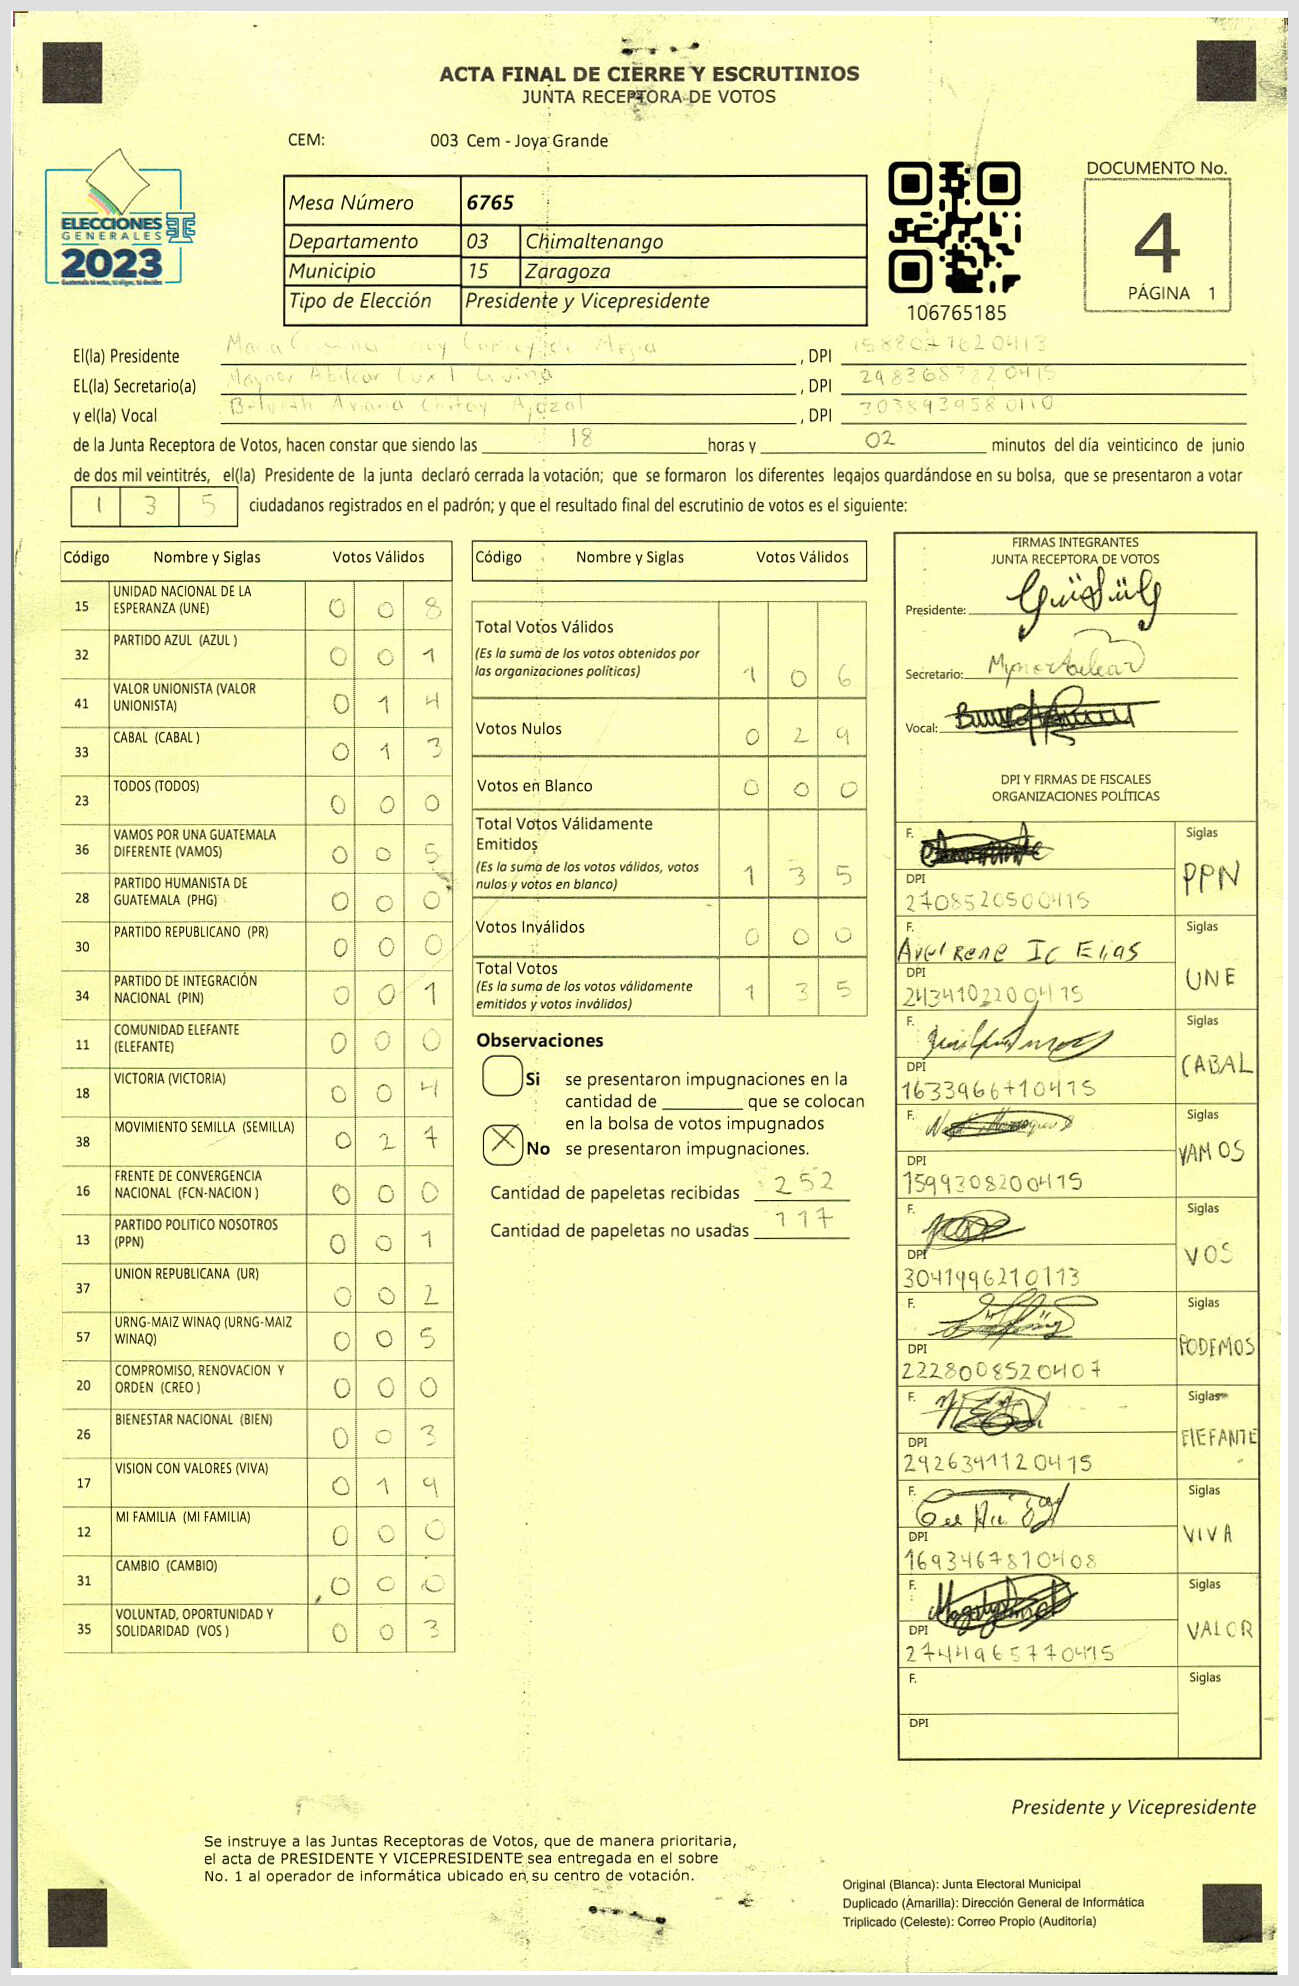 ACTA FINAL DE CIERRE Y ESCRUTINIOS
JUNTA RECEPTORA DE VOTOS
CEM: 003 Cem - Joya Grande
ELECCIONES
GENERALES
2023
Mesa Número 6765
Departamento 03 Chimaltenango
Municipio 15 Zaragoza
Tipo de Elección Presidente y Vicepresidente
106765185
DOCUMENTO No.
4
PÁGINA 1
El(la) Presidente , DPI
EL(la) Secretario(a) , DPI
y el(la) Vocal , DPI 3038939580110
de la Junta Receptora de Votos, hacen constar que siendo las 18 horas y 02 minutos del día veinticinco de junio
de dos mil veintitrés, el(la) Presidente de la junta declaró cerrada la votación; que se formaron los diferentes legajos guardándose en su bolsa, que se presentaron a votar
1 3 5 ciudadanos registrados en el padrón; y que el resultado final del escrutinio de votos es el siguiente:
Código Nombre y Siglas Votos Válidos
15 UNIDAD NACIONAL DE LA ESPERANZA (UNE) 0 0 8
32 PARTIDO AZUL (AZUL ) 0 0 1
41 VALOR UNIONISTA (VALOR UNIONISTA) 0 1 4
33 CABAL (CABAL ) 0 1 3
23 TODOS (TODOS) 0 0 0
36 VAMOS POR UNA GUATEMALA DIFERENTE (VAMOS) 0 0 5
28 PARTIDO HUMANISTA DE GUATEMALA (PHG) 0 0 0
30 PARTIDO REPUBLICANO (PR) 0 0 0
34 PARTIDO DE INTEGRACIÓN NACIONAL (PIN) 0 0 1
11 COMUNIDAD ELEFANTE (ELEFANTE) 0 0 0
18 VICTORIA (VICTORIA) 0 0 4
38 MOVIMIENTO SEMILLA (SEMILLA) 0 2 7
16 FRENTE DE CONVERGENCIA NACIONAL (FCN-NACION ) 0 0 0
13 PARTIDO POLITICO NOSOTROS (PPN) 0 0 1
37 UNION REPUBLICANA (UR) 0 0 2
57 URNG-MAIZ WINAQ (URNG-MAIZ WINAQ) 0 0 5
20 COMPROMISO, RENOVACION Y ORDEN (CREO ) 0 0 0
26 BIENESTAR NACIONAL (BIEN) 0 0 3
17 VISION CON VALORES (VIVA) 0 1 9
12 MI FAMILIA (MI FAMILIA) 0 0 0
31 CAMBIO (CAMBIO) 0 0 0
35 VOLUNTAD, OPORTUNIDAD Y SOLIDARIDAD (VOS ) 0 0 3
Código Nombre y Siglas Votos Válidos
Total Votos Válidos
(Es la suma de los votos obtenidos por
las organizaciones políticas) 1 0 6
Votos Nulos 0 2 9
Votos en Blanco 0 0 0
Total Votos Válidamente
Emitidos
(Es la suma de los votos válidos, votos
nulos y votos en blanco) 1 3 5
Votos Inválidos 0 0 0
Total Votos
(Es la suma de los votos válidamente
emitidos y votos inválidos) 1 3 5
Observaciones
Si se presentaron impugnaciones en la
cantidad de ________ que se colocan
en la bolsa de votos impugnados
No se presentaron impugnaciones.
Cantidad de papeletas recibidas 252
Cantidad de papeletas no usadas 117
FIRMAS INTEGRANTES
JUNTA RECEPTORA DE VOTOS
Presidente:
Secretario:
Vocal:
DPI Y FIRMAS DE FISCALES
ORGANIZACIONES POLÍTICAS
F. Siglas
PPN
DPI
2708520500415
F. Siglas
Avel Rene Ic Elias
UNE
DPI
2434102200415
F. Siglas
CABAL
DPI
1633966710415
F. Siglas
VAMOS
DPI
1599308200415
F. Siglas
VOS
DPI
3041996210113
F. Siglas
PODEMOS
DPI
2228008520407
F. Siglas
ElEFANTE
DPI
2926391120415
F. Siglas
VIVA
DPI
1693467810408
F. Siglas
VALOR
DPI
2744965770415
F. Siglas
DPI
Presidente y Vicepresidente
Se instruye a las Juntas Receptoras de Votos, que de manera prioritaria,
el acta de PRESIDENTE Y VICEPRESIDENTE sea entregada en el sobre
No. 1 al operador de informática ubicado en su centro de votación.
Original (Blanca): Junta Electoral Municipal
Duplicado (Amarilla): Dirección General de Informática
Triplicado (Celeste): Correo Propio (Auditoría)